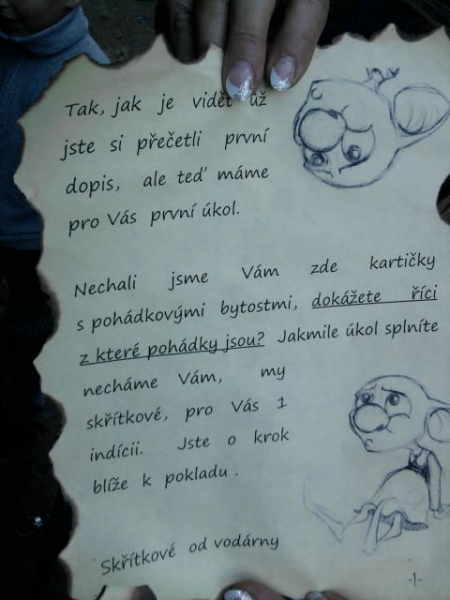 Tak, jak je vidět už
jste si přečetli první
dopis, ale teď máme
pro Vás první úkol.
Nechali jsme Vám zde kartičky
s pohádkovými bytostmi, dokážete říci
z které pohádky jsou? Jakmile úkol splníte
necháme Vám, my
skřítkové, pro Vás 1
indícii. Jste o krok
blíže k pokladu.
Skřítkové od vodárny
-1-